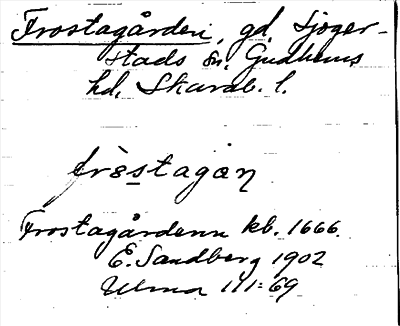 Frostagården, gd, Sjöger-
stads sn. Gudhems
hd, Skarab. l.
Frostagårdenn kb. 1666.
E. Sandberg 1902
111:69